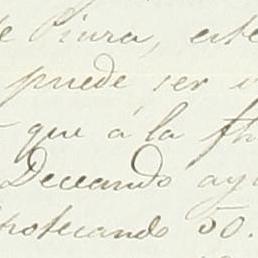 e Piura, este
puede ser
que á la
Deceando ay
potecando 50.